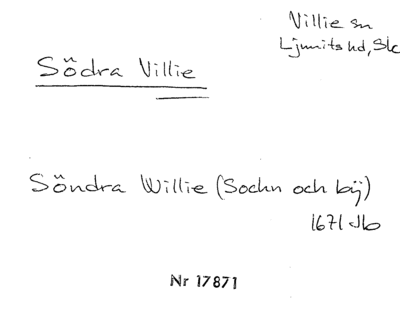 Villie sn
Ljunits hd, Sk
Södra Villie
Söndra Willie (Sochn och bÿ)
1671 Jb
Nr 17871